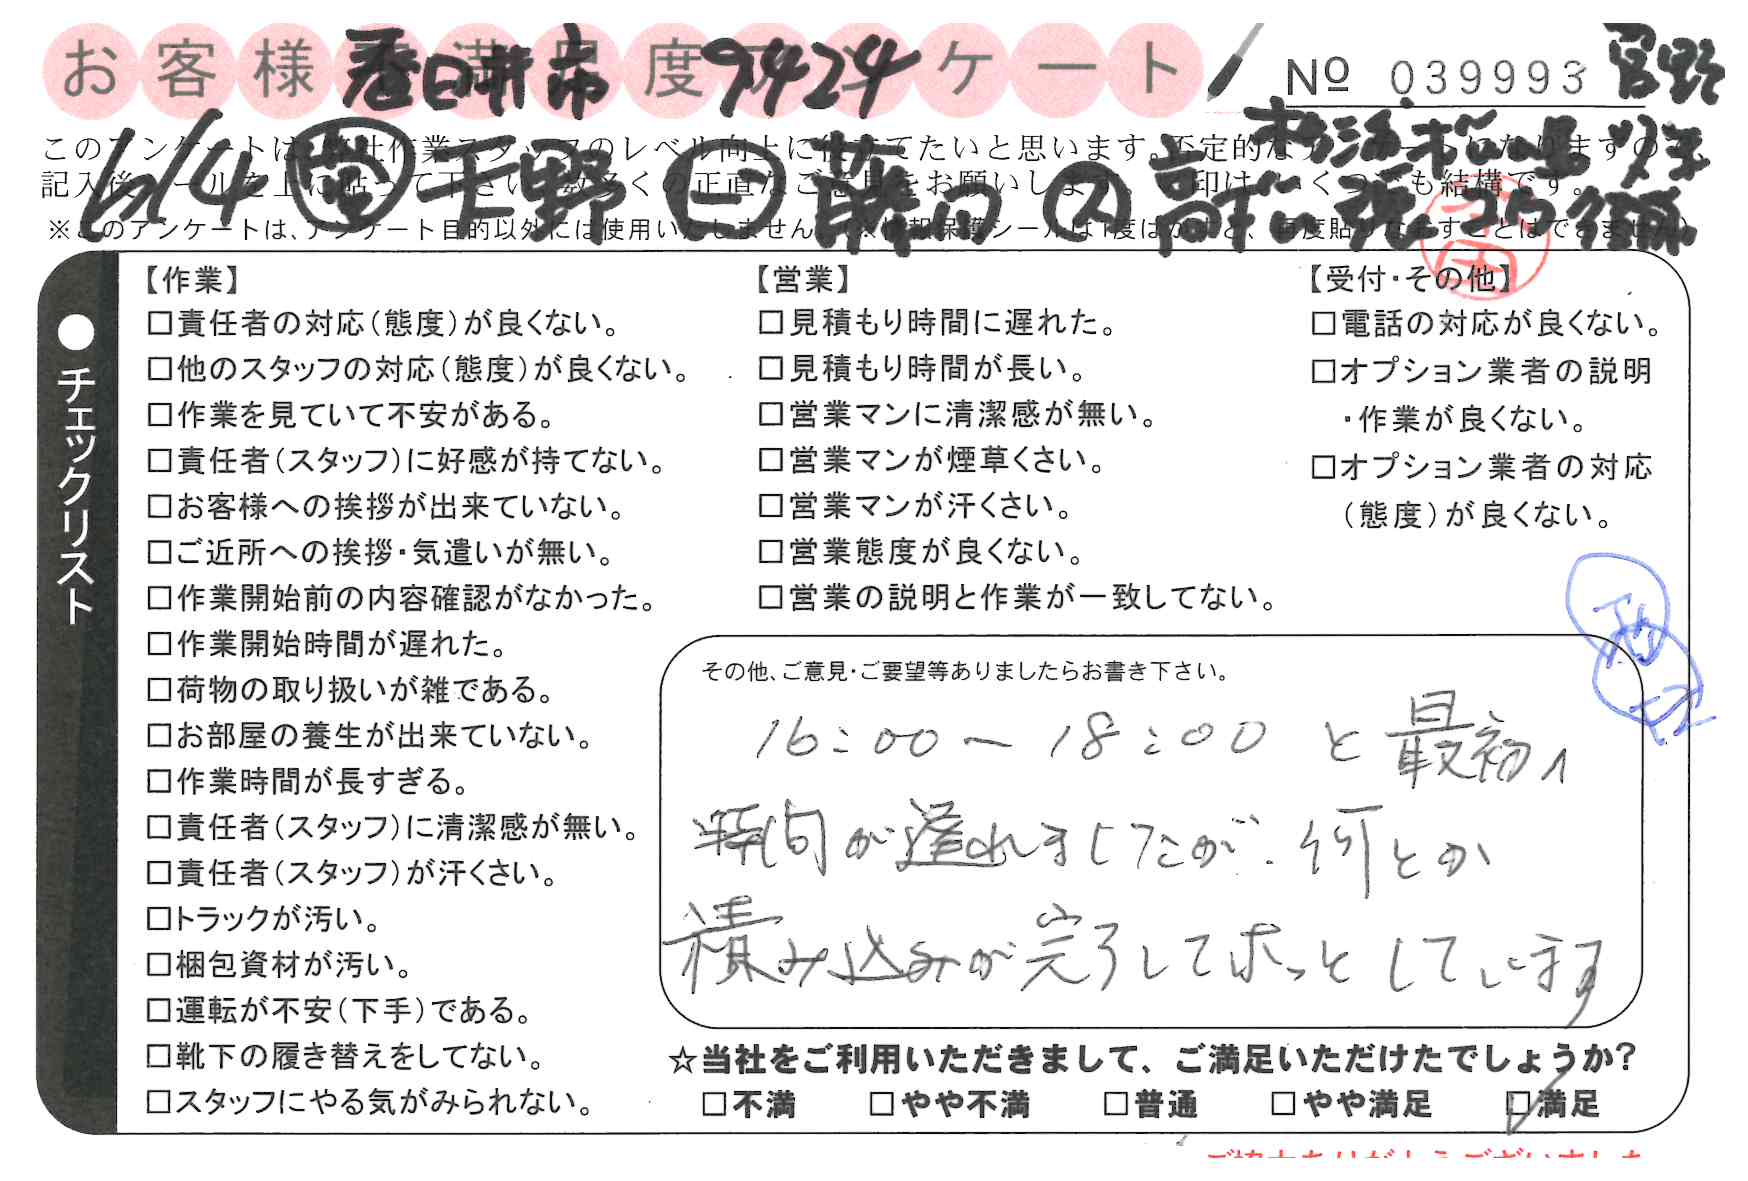 お客様不満足度アンケート
春日井市 9424
№ 039993
このアンケートは、弊社作業スタッフのレベル向上に役立てたいと思います。否定的なアンケートになりますので、
記入後シールを上に貼って下さい。数多くの正直なご意見をお願いします。
※このアンケートは、アンケート目的以外には使用いたしません。
6/4 営 天野 二
●チェックリスト
【作業】
□責任者の対応（態度）が良くない。
□他のスタッフの対応（態度）が良くない。
□作業を見ていて不安がある。
□責任者（スタッフ）に好感が持てない。
□お客様への挨拶が出来ていない。
□ご近所への挨拶・気遣いが無い。
□作業開始前の内容確認がなかった。
□作業開始時間が遅れた。
□荷物の取り扱いが雑である。
□お部屋の養生が出来ていない。
□作業時間が長すぎる。
□責任者（スタッフ）に清潔感が無い。
□責任者（スタッフ）が汗くさい。
□トラックが汚い。
□梱包資材が汚い。
□運転が不安（下手）である。
□靴下の履き替えをしてない。
□スタッフにやる気がみられない。
【営業】
□見積もり時間に遅れた。
□見積もり時間が長い。
□営業マンに清潔感が無い。
□営業マンが煙草くさい。
□営業マンが汗くさい。
□営業態度が良くない。
□営業の説明と作業が一致してない。
【受付・その他】
□電話の対応が良くない。
□オプション業者の説明
・作業が良くない。
□オプション業者の対応
（態度）が良くない。
その他、ご意見・ご要望等ありましたらお書き下さい。
16:00〜18:00 と最初、
時間が遅れましたが、何とか
積み込みが完了してホっとしています
☆当社をご利用いただきまして、ご満足いただけたでしょうか?
□不満 □やや不満 □普通 □やや満足 □満足